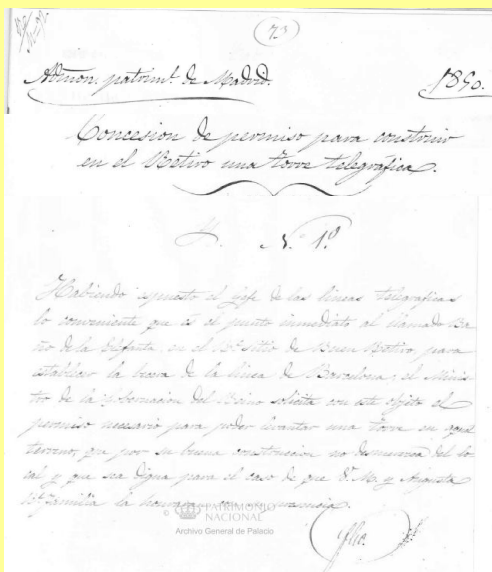 73
Admon. patriml. de Madrid. 1850.
Concesion de permiso para construir
en el Retiro una torre telegráfica.
N. 1º
Habiendo espuesto el gefe de las lineas telegraficas
lo conveniente que es el punto inmediato al llamado Ba
ño de la Elefanta, en el Rl. Sitio de Buen Retiro, para
establecer la tercera de la linea de Barcelona; el Minis
tro de la Gobernacion del Reino solicita con este objeto el
permiso necesario para poder levantar una torre en aquel
terreno, que por su buena construccion no desmerezca del lo
cal y que sea digna para el caso de que S. M. y Augusta
Rl. Familia la honrasen con su presencia.
© PATRIMONIO
NACIONAL
Archivo General de Palacio